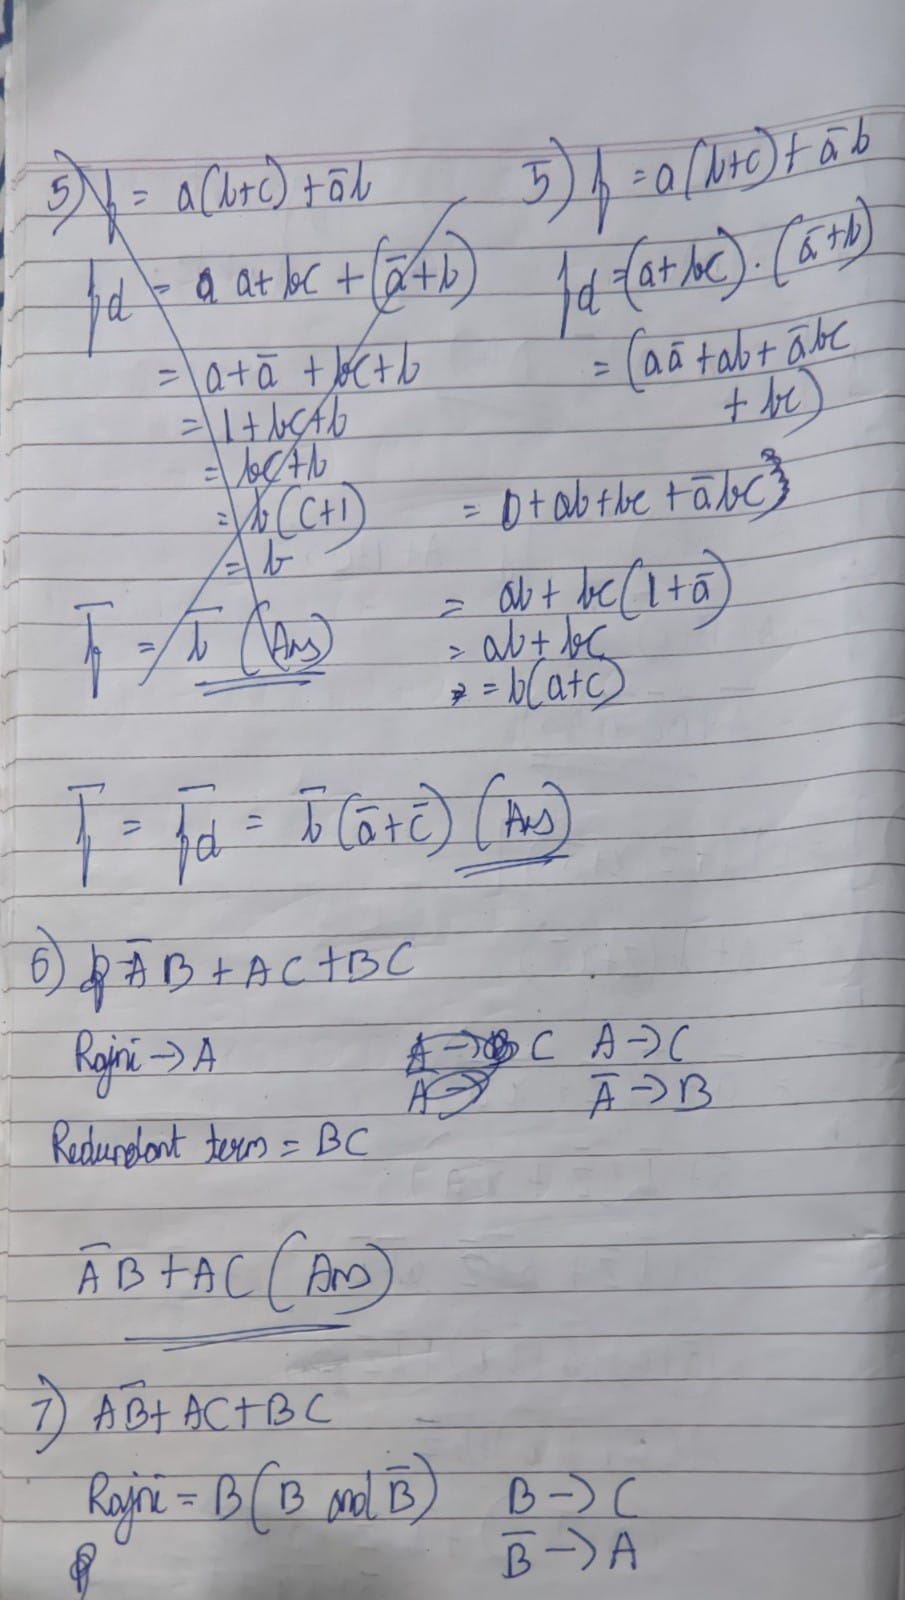 5) f = a(b+c) + āb
fd = a a + bc + (ā+b)
= a + ā + bc + b
= 1 + bc + b
= bc + b
= b(c+1)
= b
f̅ = b̅ (Ans)
5) f = a(b+c) + āb
fd = (a+bc) . (ā+b)
= (aā + ab + ābc
+ bc)
= 0 + ab + bc + ābc
= ab + bc(1+ā)
= ab + bc
= b(a+c)
f̅ = f̅d = b̅(ā+c̅) (Ans)
6) A̅B + AC + BC
Rajni → A
C A → C
A̅ → A̅ → B
Redundant term = BC
A̅B + AC (Ans)
7) AB̅ + AC + BC
Rajni = B (B and B̅) B → C
B̅ → A